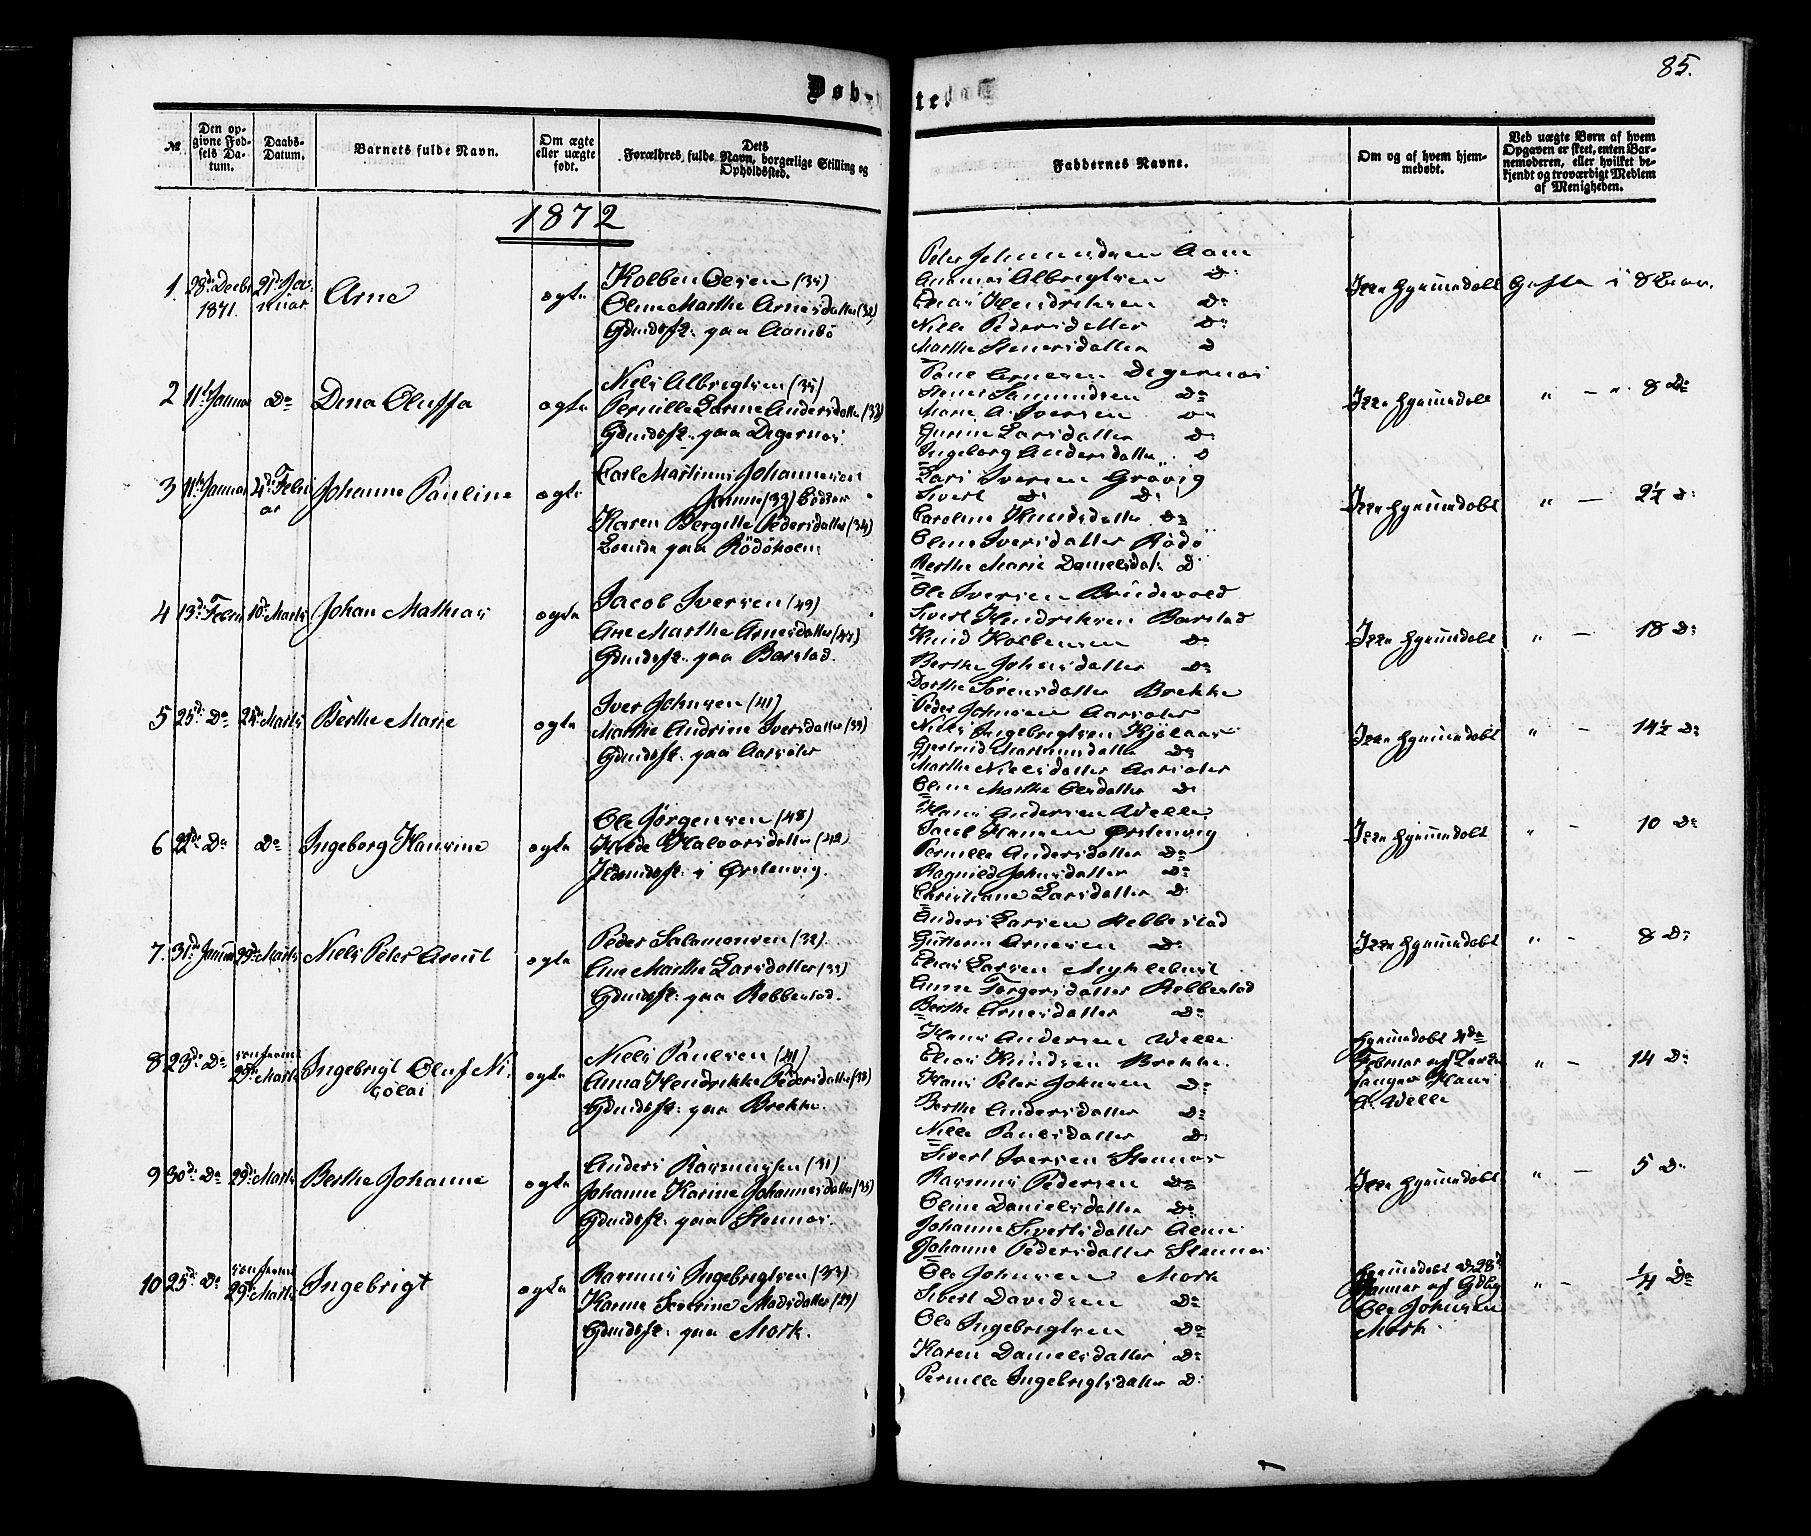 85.
Døbte.
№
Den opgivne Fødsels Datum.
Daabs-Datum.
Barnets fulde Navn.
Om ægte eller uægte født.
Dets Forældres fulde Navn, borgerlige Stilling og Opholdssted.
Faddernes Navne.
Om og af hvem hjemmedøbt.
Ved uægte Børn af hvem Opgaven er skeet, enten Barnemoderen, eller hvilket bekjendt og troværdigt Medlem af Menigheden.
1872
1. 28d Decbr 1871. 21d Januar Arne ægte
Kolben Olsen (35)
Oline Marthe Arnesdatter (32)
Gdmdsfk. paa Aambø
Peter Johannesdsen Aam
Rasmus Albregtsen Do
Elias Hendriksen Do
Nille Pedersdatter Do
Marthe Stenersdatter D
Ikke hjemmedøbt
Gifte i 8 Aar.
2 11t Januar Do Dina Oluffa ægte
Niels Albregtsen (35)
Pernille Larine Andersdatter (33)
Gdmdsfk. paa Degernæs.
Arnesen Degernæs
Stener Samundsen Do
Marie A. Iversen Do
Gurine Larsdatter Do
Ingeborg Andersdatter D
Ikke hjemmedøbt
" - " 8 Do
3 11te Januar 4d Februar Johanne Pauline ægte
Carl Martinus Johannesen
(39)
Karen Bergitte Pedersdatter (34)
paa Rödöholm
Lars Iversen Grøvig
Sivert D: D:
Caroline Knudsdatter Do
Oline Iversdatter Rødø
Berthe Marie Danielsdat. D
Ikke hjemmedøbt
" - 2½ D:
4 13d Febr 10d Marts Johan Mathias ægte
Jacob Iversen (49)
Ane Marthe Arnesdatter (47)
Gdmdsfk. paa Barstad.
Ole Iversen Brudevold
Sivert Hendriksen Barstad
Knud Kolbensen Do
Berthe Johnsdatter Do
Dorthe Sørensdatter Brekke
Ikke hjemmedøbt
" - 18 D:
5 25d: Do 24d Marts Berthe Marie ægte
Iver Johnsen (41)
Marthe Andrine Iversdatter (39)
Gdmdsfk. paa Aarsæter
Peder Johnsen Aarsæter
Niels Ingebrigtsen Kjölaas
Gjertrud Do
Marthe Nielsdatter Aarsæter
Oline Marthe Olesdatter D:
Ikke hjemmedøbt
" - 14½ D:
6 22de Do Do Ingeborg Hansine ægte
Ole Jørgensen (48)
Halvorsdatter (42)
i Ørstenvig.
Hans Andersen Welle
Jacob Hansen Ørstenvig
Pernille Andersdatter Do
Ragnild Johnsdatter Do
Christiane Larsdatter D:
Ikke hjemmedøbt
" - 10 D:
7. 31d Januar 29d Marts Niels Peter ægte
Peder Salamonsen (32).
Ane Marthe Larsdatter (33)
Gdmdsfk. paa Rebbestad.
Anders Larsen Rebbestad
Arnesen D:
Elias Larsen Myklebust
Anne Torgersdatter Rebbestad
Berthe Arnesdatter Do
Ikke hjemmedøbt
" - 8 D:
8 23de Do 29d Marts Ingebrigt Oluf Nicolai ægte
Niels Paulsen (41)
Anna Hendrikke Pedersdatter (38)
Gdmdsfk. paa Brekke.
Hans Andersen Welle
Elias Knudsen Brekke.
Hans Peter Johnsen D:
Berthe Andersdatter Do
Nille Paulsdatter D:
hjemmedøbt 4de
Februar af
Hans
A. Welle
" - 14 D:
9 30d: Do 29d Marts Berthe Johanne ægte
Anders Rasmussen (31)
Johanne Karine Johannesdatter (35)
Gdmdsfk. paa Stennæs.
Sivert Iversen Stennæs
Rasmus Pedersen Do
Oline Danielsdatter Do
Johanne Sivertsdatter
Johanne Pedersdatter Stennæs
Ikke hjemmedøbt
" - 5 D:
10 25d: Do 29d Marts Ingebrigt ægte
Rasmus Ingebrigtsen (33)
Karine Severine Madsdatter (29)
Gdmdsfk. paa Mork.
Ole Johnsen Mork
Sivert Davidsen Do
Ole Ingebrigtsen Do
Karen Danielsdatter D:
Pernille Ingebrigtsdatter D:
hjemmedøbt d. 28d
Januar af
Ole Johnsen
Mork.
" - ¼ Do